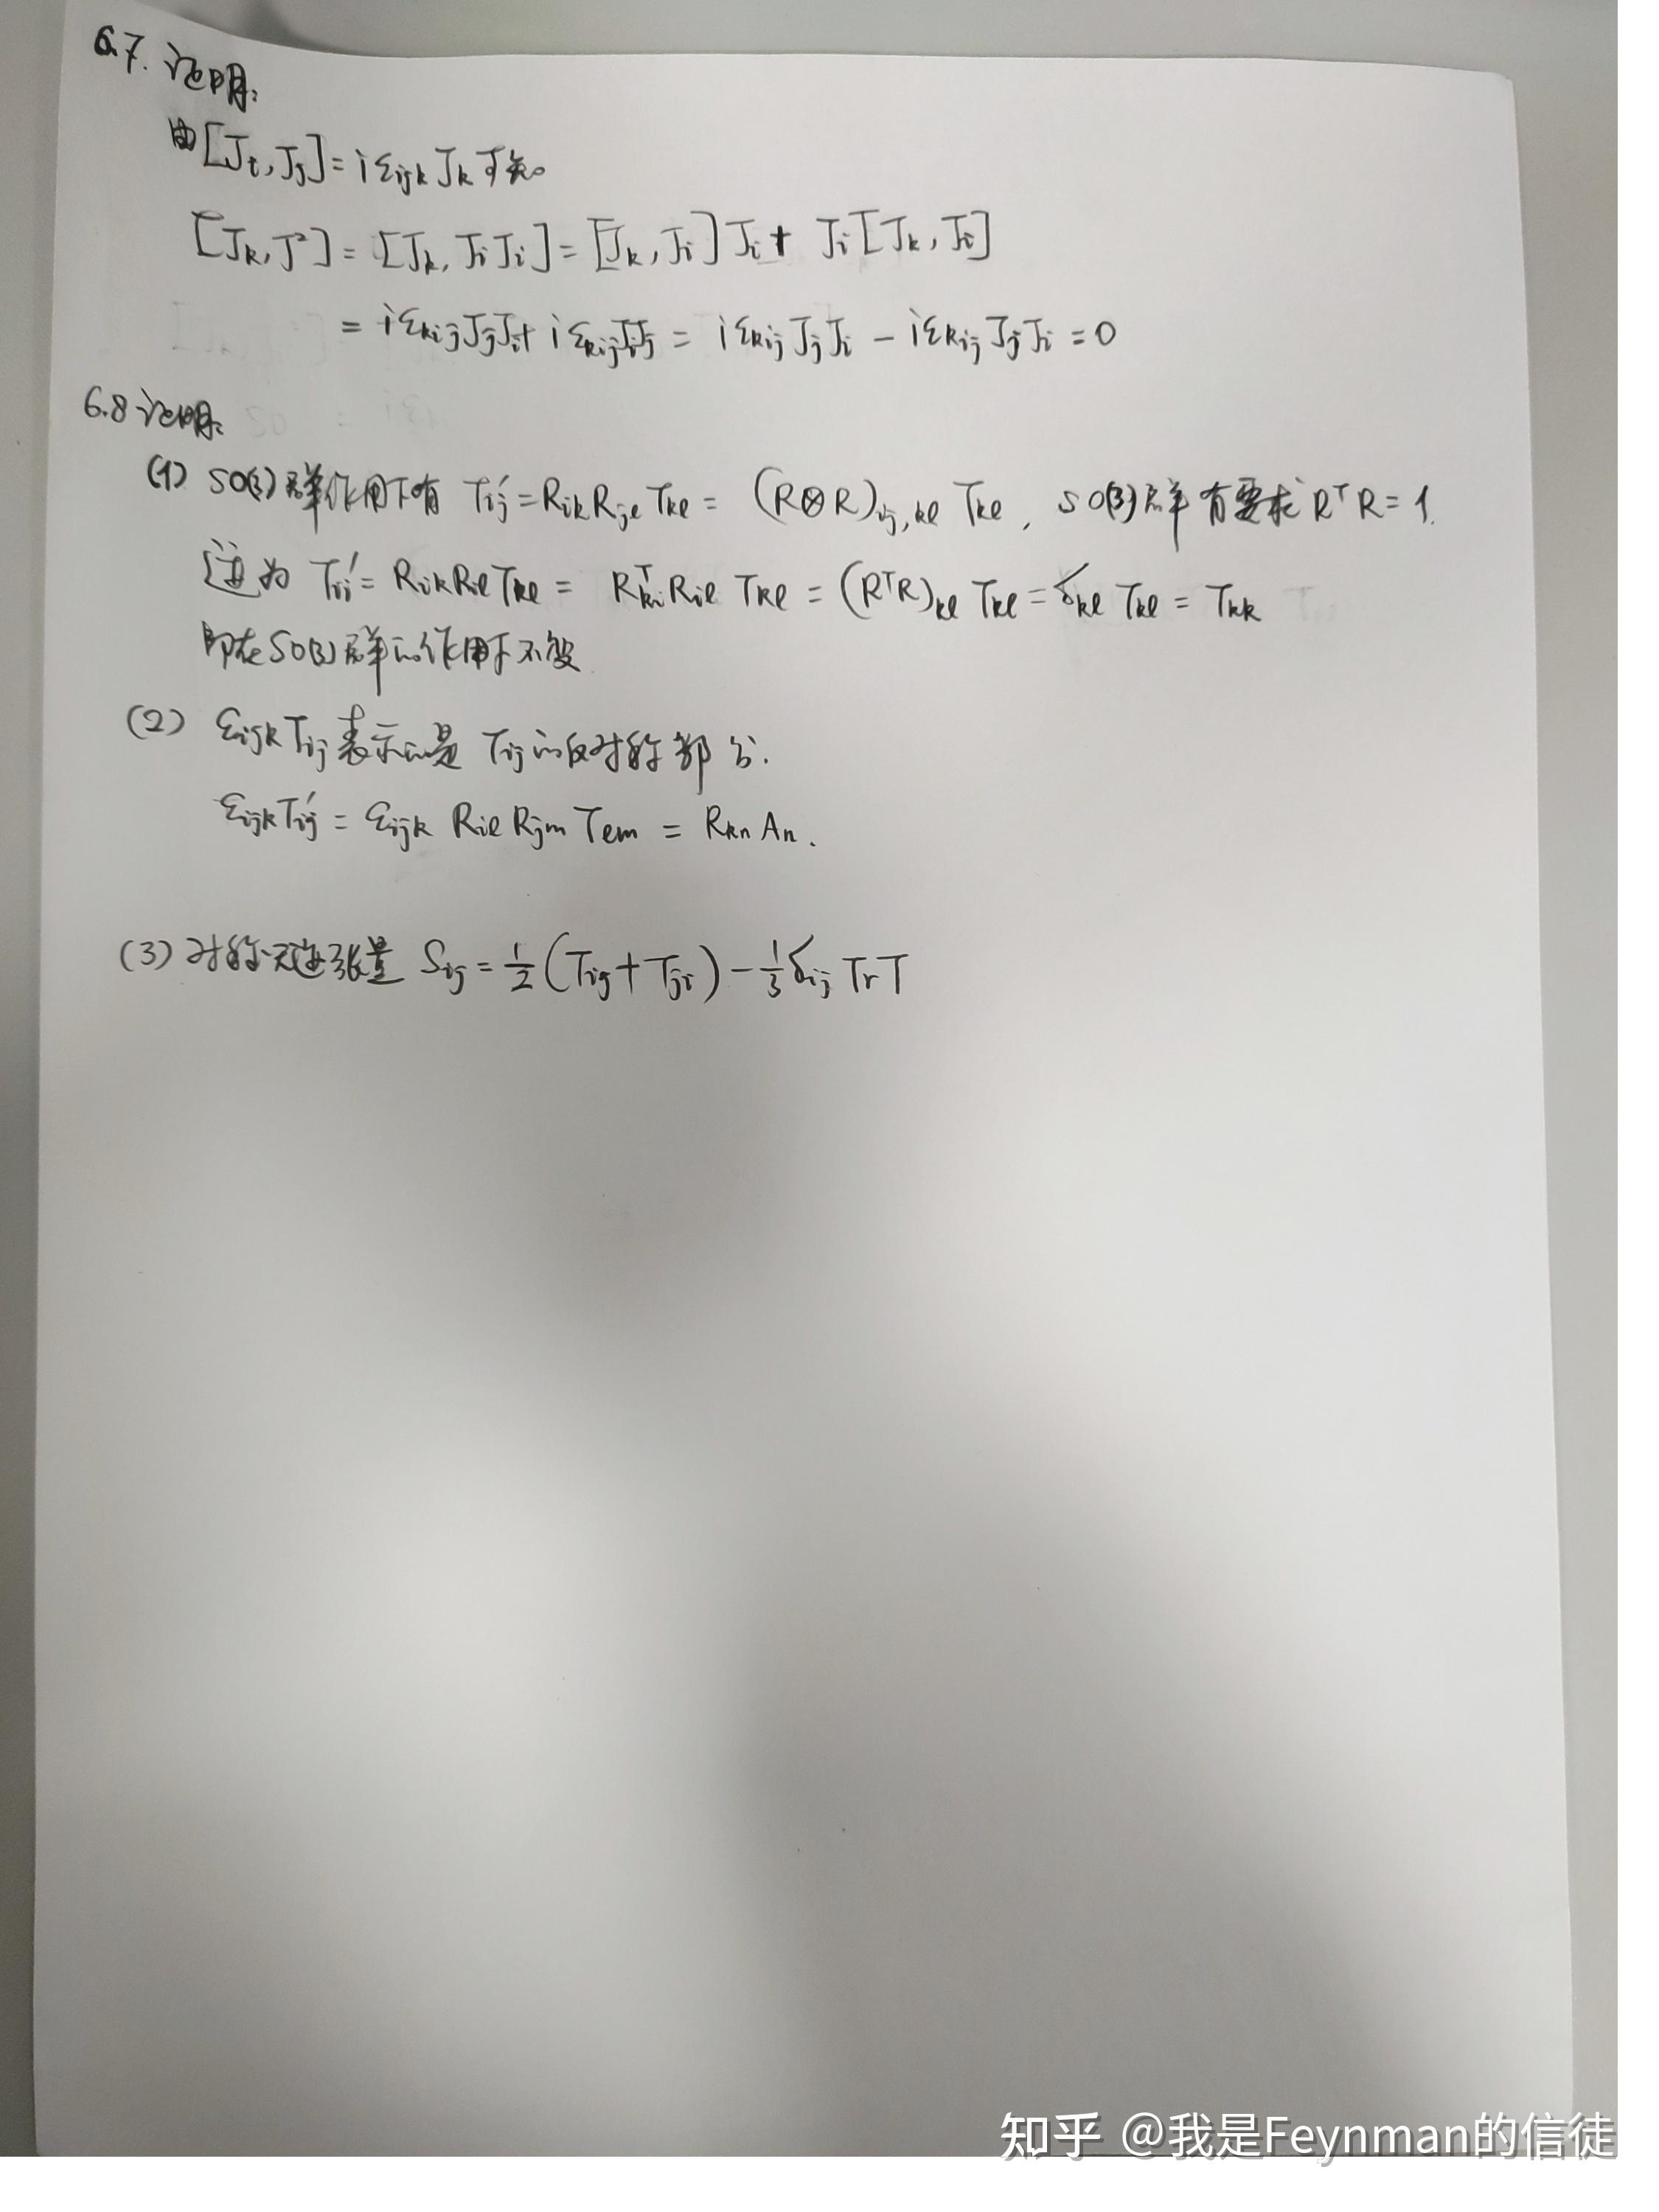 6.7. 证明:
由[Jᵢ, Jⱼ] = iεᵢⱼₖ Jₖ 可知。
[Jₖ, J²] = [Jₖ, JᵢJᵢ] = [Jₖ, Jᵢ]Jᵢ + Jᵢ[Jₖ, Jᵢ]
= iεₖᵢⱼJⱼJᵢ + iεₖᵢⱼJᵢJⱼ = iεₖᵢⱼJⱼJᵢ - iεₖᵢⱼJⱼJᵢ = 0
6.8 证明:
(1) SO(3)群作用下有 T'ᵢⱼ = RᵢₖRⱼₗTₖₗ = (R⊗R)ᵢⱼ,ₖₗ Tₖₗ, SO(3)群有要求 RᵀR = 1.
迹为 T'ᵢᵢ = RᵢₖRᵢₗTₖₗ = RᵀₖᵢRᵢₗ Tₖₗ = (RᵀR)ₖₗ Tₖₗ = δₖₗ Tₖₗ = Tₖₖ
即在SO(3)群的作用下不变
(2) εᵢⱼₖTᵢⱼ表示的是 Tᵢⱼ的反对称部分.
εᵢⱼₖT'ᵢⱼ = εᵢⱼₖ Rᵢₗ Rⱼₘ Tₗₘ = Rₖₙ Aₙ.
(3) 对称无迹张量 Sᵢⱼ = 1/2 (Tᵢⱼ + Tⱼᵢ) - 1/3 δᵢⱼ Tr T
知乎 @我是Feynman的信徒